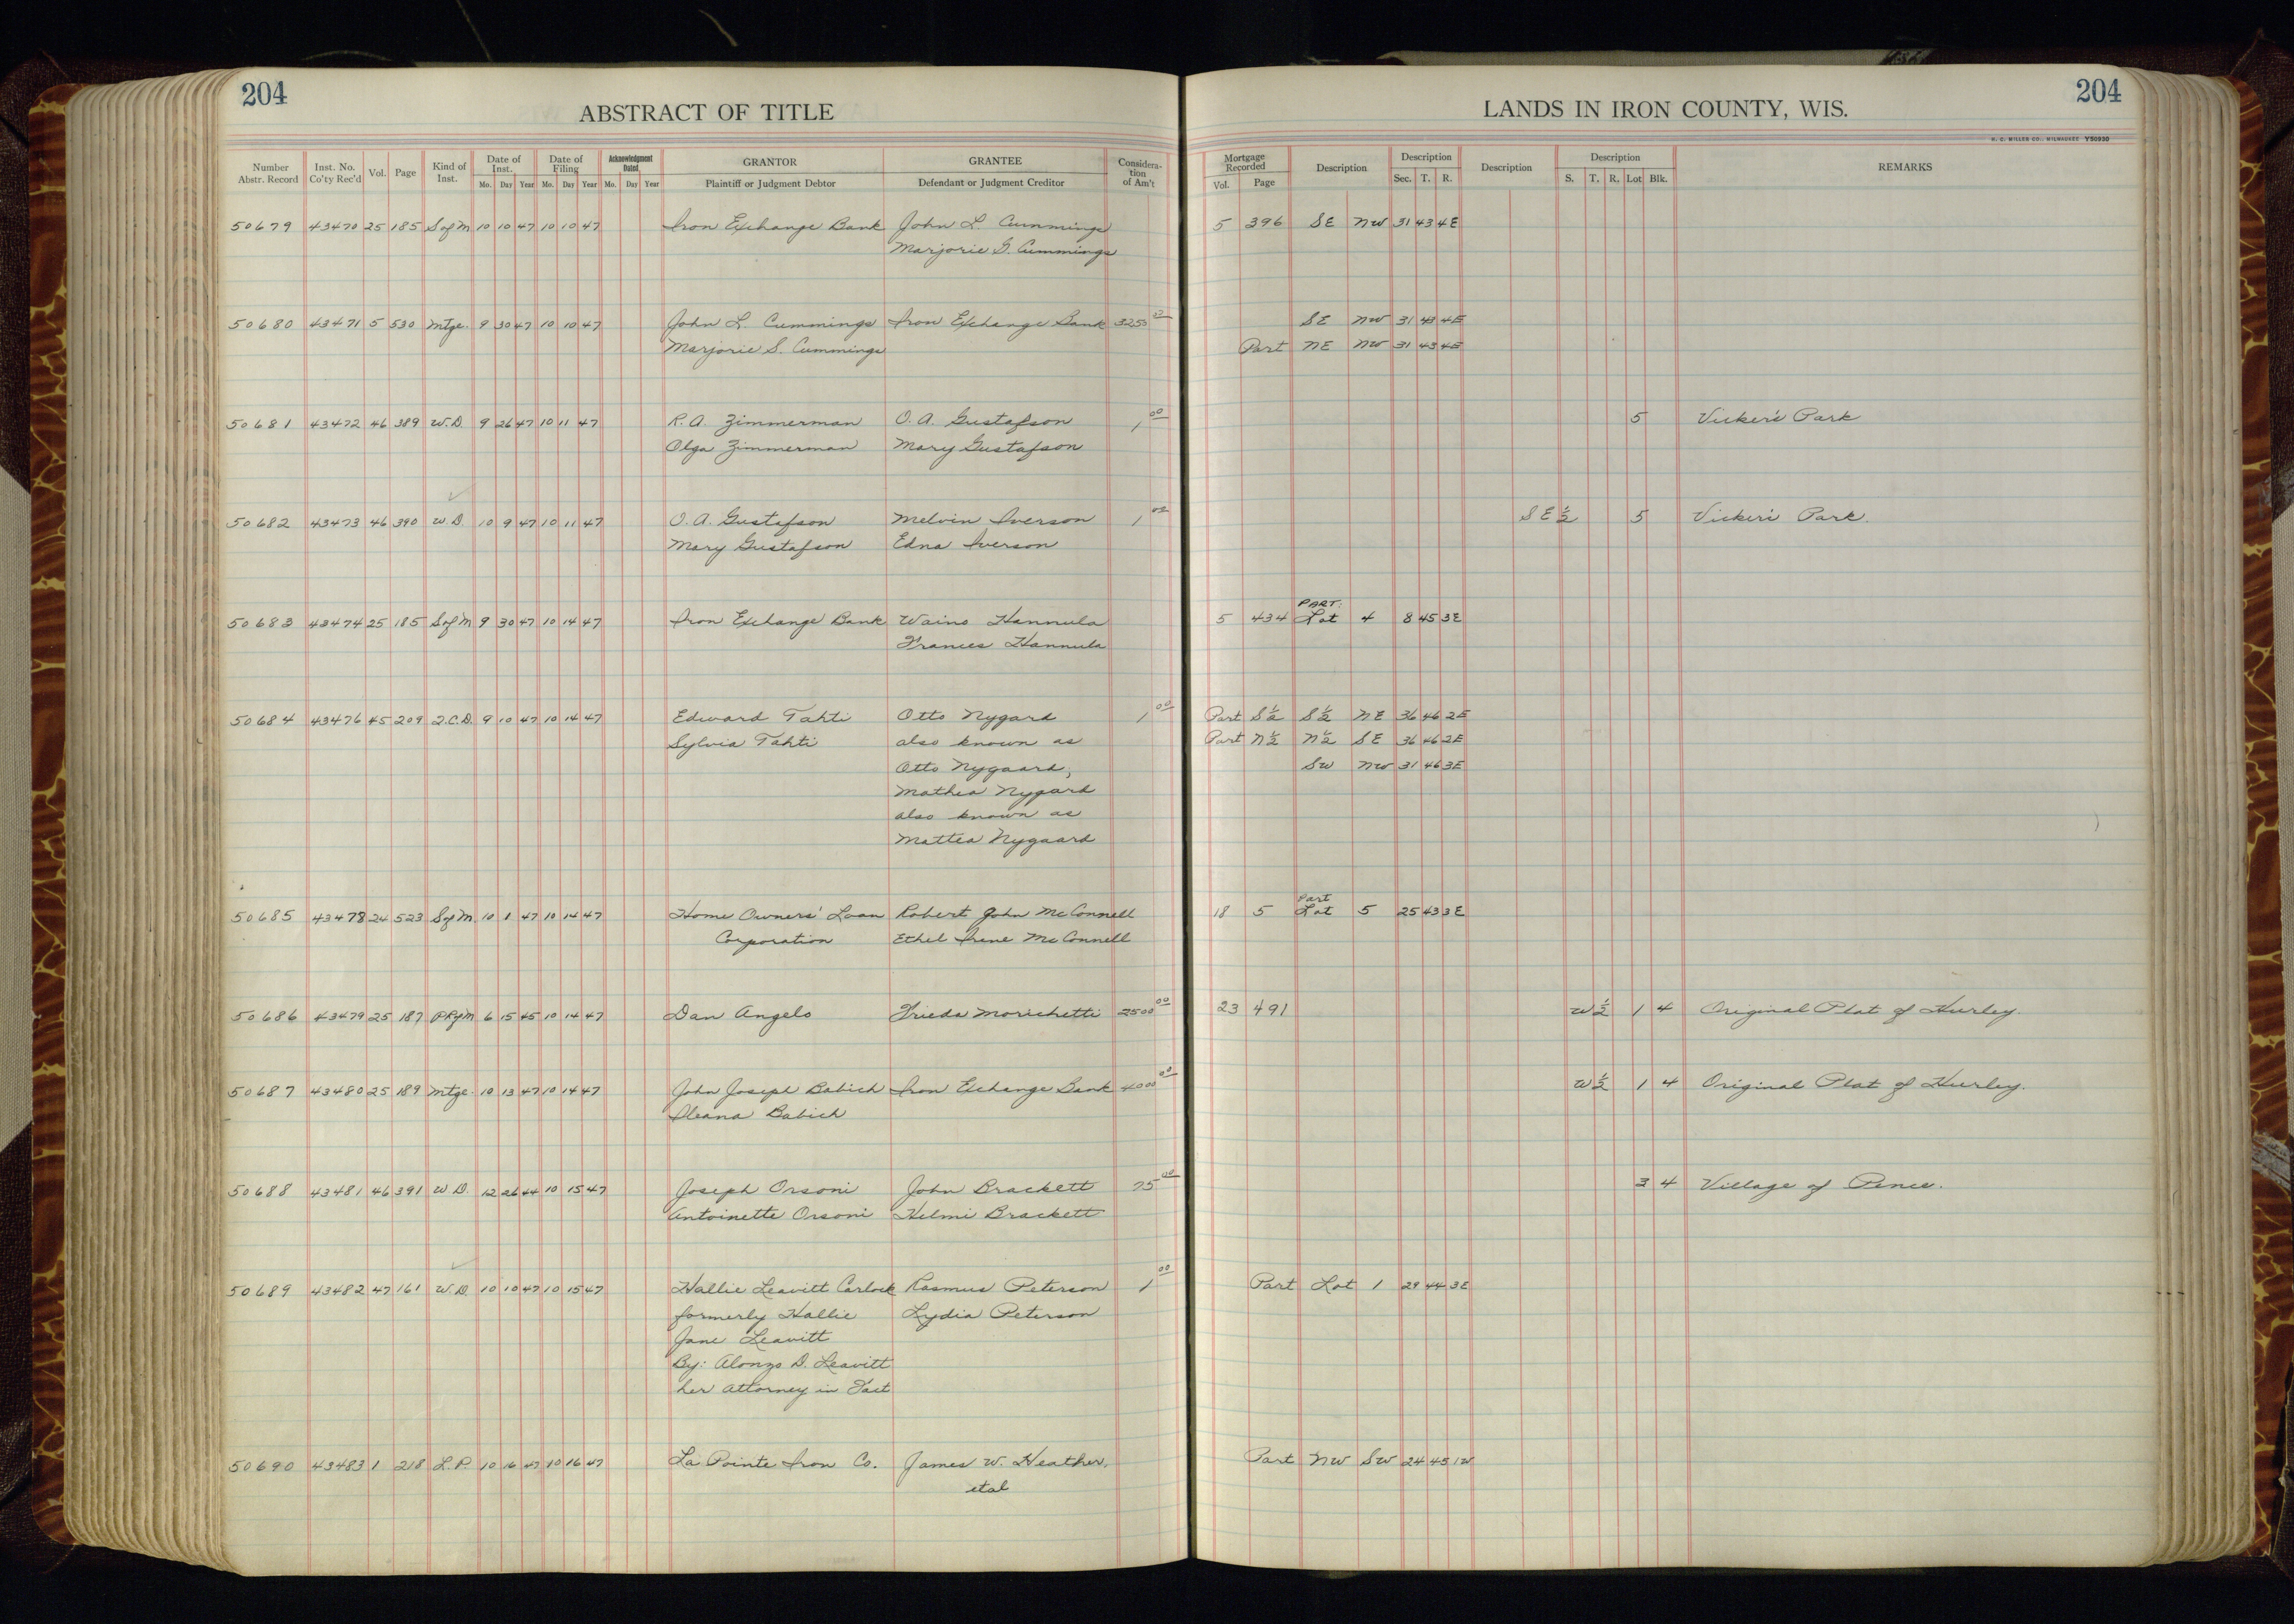 204
204
ABSTRACT OF TITLE
LANDS IN IRON COUNTY, WIS.
H. C. MILLER CO., MILWAUKEE Y50930
Number Abstr. Record Inst. No. Co'ty Rec'd Vol. Page Kind of Inst. Date of Inst. Mo. Day Year Date of Filing Mo. Day Year Acknowledgment Dated Mo. Day Year GRANTOR Plaintiff or Judgment Debtor GRANTEE Defendant or Judgment Creditor Considera-tion of Am't Mortgage Recorded Vol. Page Description Description Sec. T. R. Description Description S. T. R. Lot Blk. REMARKS
50679 43470 25 185 S of M 10 10 47 10 10 47 Iron Exchange Bank John L. Cummings 5 396 SE NW 31 43 4E
Marjorie S. Cummings
50680 43471 5 530 Mtge. 9 30 47 10 10 47 John L. Cummings Iron Exchange Bank 3250 SE NW 31 43 4E
Marjorie S. Cummings Part NE NW 31 43 4E
50681 43472 46 389 W.D. 9 26 47 10 11 47 R. A. Zimmerman O. A. Gustafson 1 00 5 Vicker's Park
Olga Zimmerman Mary Gustafson
50682 43473 46 390 W.D. 10 9 47 10 11 47 O. A. Gustafson Melvin Iverson 1 00 SE ½ 5 Vicker's Park.
Mary Gustafson Edna Iverson
PART:
50683 43474 25 185 S of M 9 30 47 10 14 47 Iron Exchange Bank Waino Hannula 5 434 Lot 4 8 45 3E
Frances Hannula
50684 43476 45 209 Q.C.D. 9 10 47 10 14 47 Edward Tahti Otto Nygard 1 00 Part S½ S½ NE 36 46 2E
Sylvia Tahti also known as Part N½ N½ SE 36 46 2E
Otto Nygaard, SW NW 31 46 3E
Mathea Nygard
also known as
Mattea Nygaard
Part
50685 43478 24 523 S of M 10 1 47 10 14 47 Home Owners' Loan Robert John McConnell 18 5 Lot 5 25 43 3E
Corporation Ethel Irene McConnell
50686 43479 25 187 PRyM 6 15 45 10 14 47 Dan Angelo Frieda Morichetti 2500 00 23 491 W½ 1 4 Original Plat of Hurley.
50687 43480 25 189 Mtge. 10 13 47 10 14 47 John Joseph Babich Iron Exchange Bank 4000 00 W½ 1 4 Original Plat of Hurley.
Ileana Babich
50688 43481 46 391 W D. 12 26 44 10 15 47 Joseph Orsoni John Brackett 75 00 3 4 Village of Pence.
Antoinette Orsoni Helmi Brackett
50689 43482 47 161 W.D. 10 10 47 10 15 47 Hallie Leavitt Carlock Rasmus Peterson 1 00 Part Lot 1 29 44 3E
formerly Hallie Lydia Peterson
Jane Leavitt
By: Alonzo D. Leavitt
her attorney in Fact
50690 43483 1 218 L.P. 10 16 47 10 16 47 La Pointe Iron Co. James W. Heather, Part NW SW 24 45 1W
etal